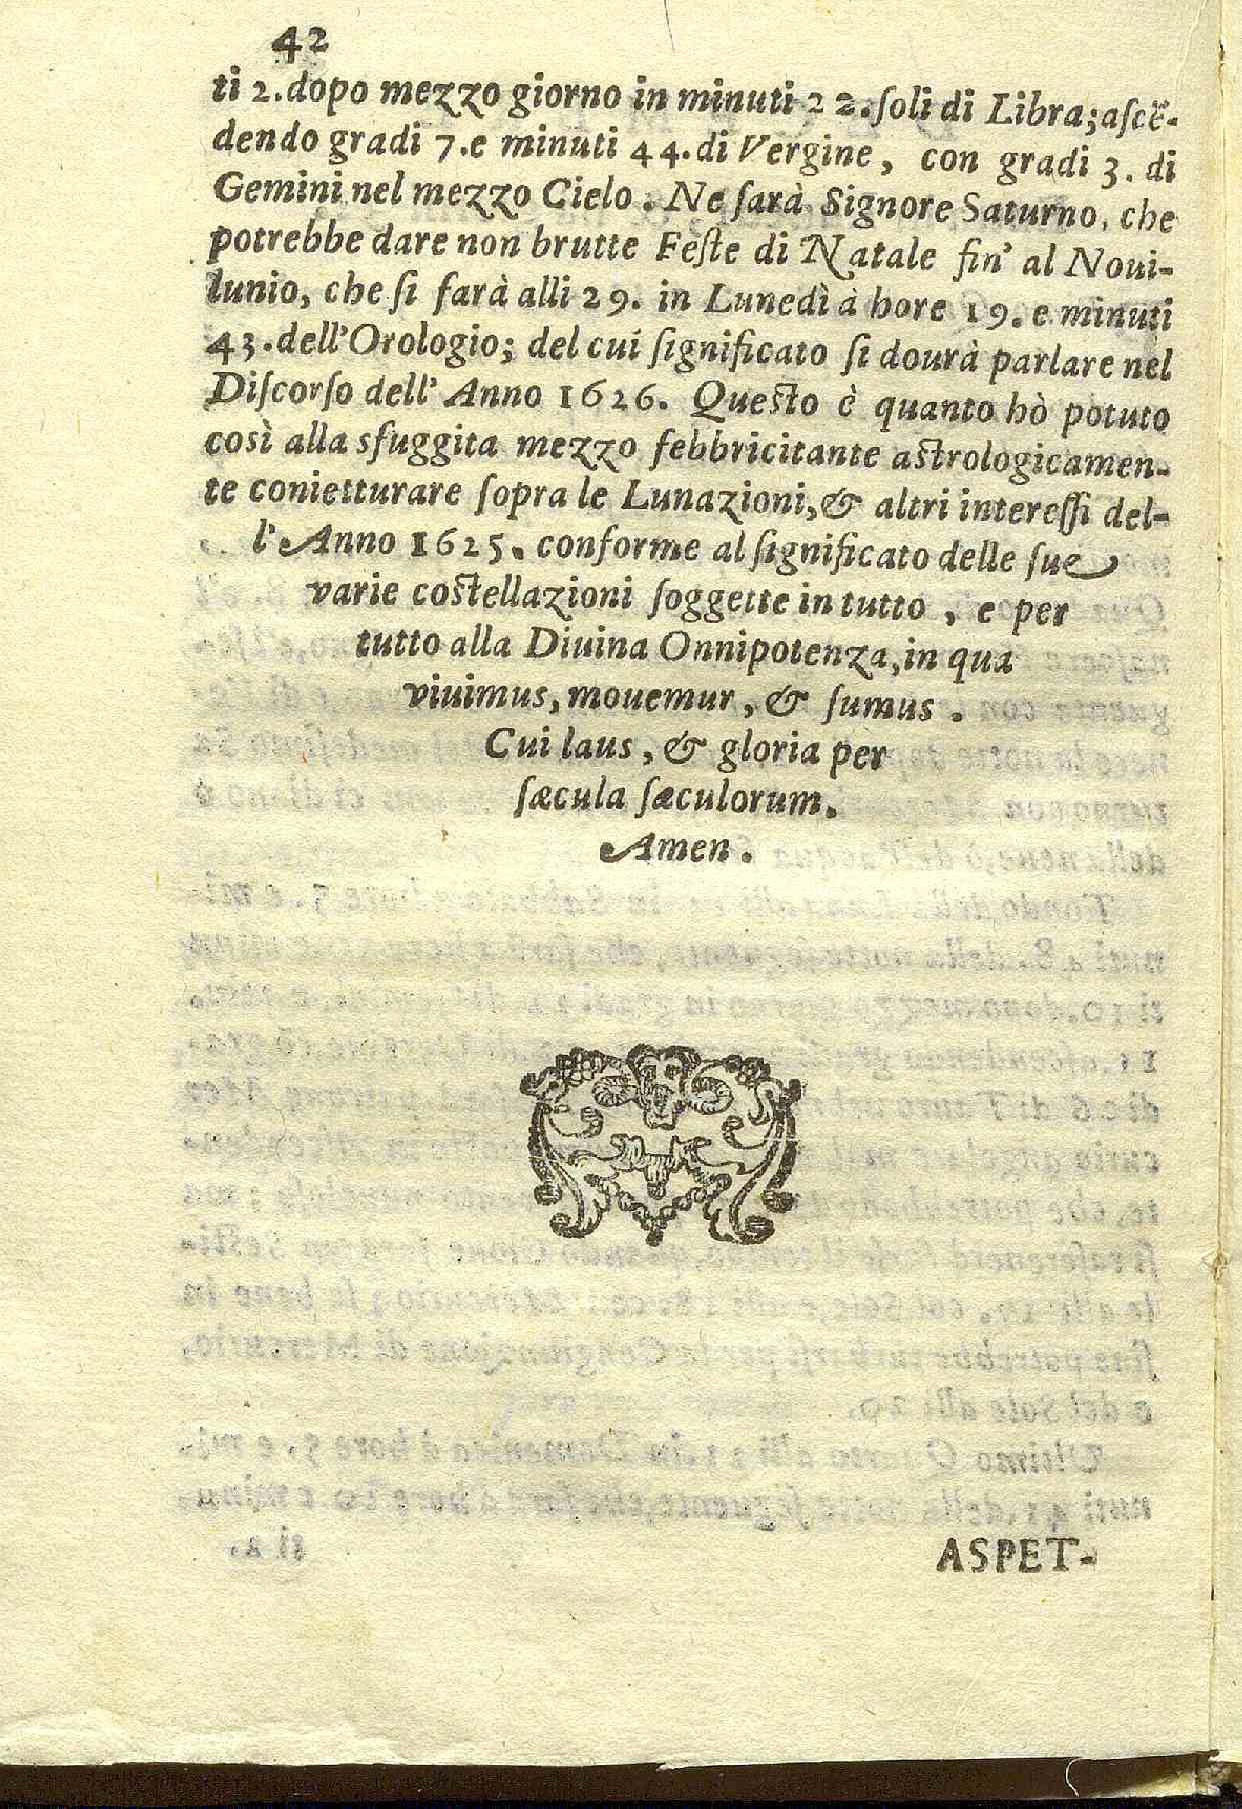 42
ti 2. dopo mezzo giorno in minuti 22. ſoli di Libra; aſcẽ-
dendo gradi 7. e minuti 44. di Vergine, con gradi 3. di
Gemini nel mezzo Cielo. Ne ſarà Signore Saturno, che
potrebbe dare non brutte Feſte di Natale fin' al Noui-
lunio, che ſi farà alli 29. in Lunedì à hore 19. e minuti
43. dell'Orologio; del cui ſignificato ſi dourà parlare nel
Diſcorſo dell' Anno 1626. Queſto è quanto hò potuto
così alla sfuggita mezzo febbricitante aſtrologicamen-
te conietturare ſopra le Lunazioni, & altri intereſſi del-
l'Anno 1625. conforme al ſignificato delle ſue
varie coſtellazioni ſoggette in tutto, e per
tutto alla Diuina Onnipotenza, in qua
viuimus, mouemur, & ſumus.
Cui laus, & gloria per
ſæcula ſæculorum.
Amen.
ASPET-